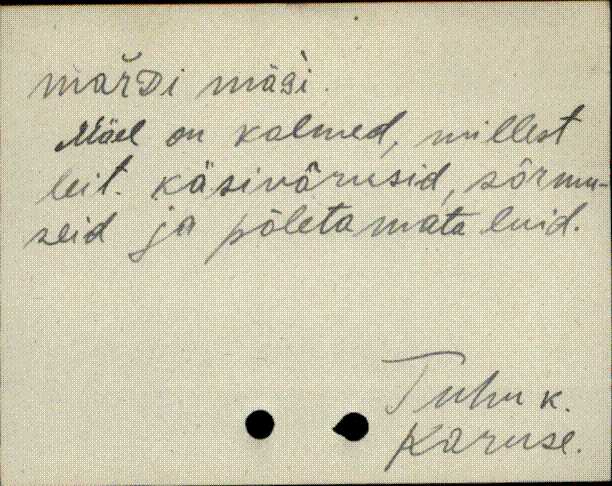 mardi mägi.
Mäel on kalmed, millest
leit. käsivõrusid, sõrmu-
seid ja põletamata luid.
Tuhu k.
Karuse.